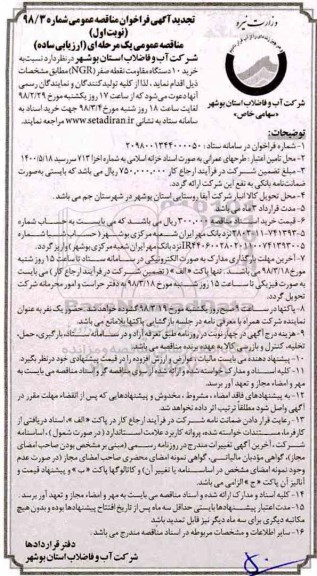 وزارت نیرو
شرکت آب و فاضلاب استان بوشهر
«سهامی خاص»
تجدید آگهی فراخوان مناقصه عمومی شماره ۹۸/۳
(نوبت اول)
مناقصه عمومی یک مرحله ای (ارزیابی ساده)
شرکت آب و فاضلاب استان بوشهر در نظر دارد نسبت به
خرید ۱۰ دستگاه مقاومت نقطه صفر (NGR) مطابق مشخصات
ذیل اقدام نماید، لذا از کلیه تولیدکنندگان و نمایندگان رسمی
آنها دعوت می‌شود که از ساعت ۱۷ روز یکشنبه مورخ ۹۸/۲/۲۹
لغایت ساعت ۱۸ روز شنبه مورخ ۹۸/۳/۴ جهت خرید اسناد به
سامانه ستاد به نشانی www.setadiran.ir مراجعه نمایند.
توضیحات:
۱- شماره فراخوان در سامانه ستاد: ۲۰۹۸۰۰۱۳۴۴۰۰۰۰۵۰
۲- محل تامین اعتبار: طرحهای عمرانی به صورت اسناد خزانه اسلامی به شماره اخزا ۷۱۳ سررسید ۱۴۰۰/۵/۱۸
۳- مبلغ تضمین شرکت در فرآیند ارجاع کار ۷۵۰,۰۰۰,۰۰۰ ریال می باشد که بایستی به صورت
ضمانت‌نامه بانکی به نفع این شرکت ارائه گردد.
۴- محل تحویل کالا انبار شرکت آبفا روستایی استان بوشهر در شهرستان جم می باشد.
۵- مدت قرارداد ۳ ماه می باشد.
۶- قیمت خرید اسناد مناقصه ۳۰۰,۰۰۰ ریال می باشد که می بایست به حساب شماره
نزد بانک مهر ایران شعبه مرکزی بوشهر (حساب شبا شماره
نزد بانک مهر ایران شعبه مرکزی بوشهر) واریز گردد.
۷- آخرین مهلت بارگذاری مدارک به صورت الکترونیکی در سامانه ستاد تا ساعت ۱۵ روز شنبه
مورخ ۹۸/۳/۱۸ می باشد. تنها پاکت «الف» (تضمین شرکت در فرآیند ارجاع کار) می بایست
به صورت فیزیکی تا ساعت ۱۵ روز شنبه مورخ ۹۸/۳/۱۸ به دفتر حراست و امور محرمانه شرکت
تحویل گردد.
۸- پاکتها در ساعت ۹ صبح روز یکشنبه مورخ ۹۸/۳/۱۹ گشوده خواهند شد. حضور یک نفر به عنوان
نماینده شرکت همراه با معرفی نامه در جلسه بازگشایی پاکتها بلامانع می باشد.
۹- هزینه درج آگهی در چهار نوبت در روزنامه طبق تعرفه آزاد و در سامانه ستاد، بارگیری، حمل،
تخلیه، کنترل و بازرسی کالا به عهده برنده مناقصه می باشد.
۱۰- پیشنهاد دهنده می بایست مالیات، عوارض و ارزش افزوده را در قیمت پیشنهادی خود در نظر بگیرد.
۱۱- کلیه اسناد و مدارک خواسته شده و ارائه شده از سوی مناقصه گر و اسناد مناقصه می بایست به
مهر و امضاء مجاز و تعهد آور برسد.
۱۲- به پیشنهادهای فاقد امضاء، مشروط، مخدوش و پیشنهادهایی که پس از انقضاء مهلت مقرر در
آگهی واصل شود مطلقاً ترتیب اثر داده نخواهد شد.
۱۳- رعایت قرار دادن ضمانت نامه شرکت در فرآیند ارجاع کار در پاکت «الف»، اسناد دریافتی از
کارفرما، مستندات خواسته شده، پروانه کاربرد علامت استاندارد (در صورت شمول)، اساسنامه
شرکت، آخرین آگهی تغییرات مندرج در روزنامه رسمی (مبنی بر مشخص بودن صاحب امضای
مجاز)، گواهی مؤدیان مالیاتی، گواهی نمونه امضای محضری صاحب امضای مجاز (در صورت عدم
وجود نمونه امضای مشخص در اساسنامه یا تغییر آن) و کاتالوگها پاکت «ب» و پیشنهاد قیمت و
آنالیز آن پاکت «ج» الزامی می باشد.
۱۴- کلیه اسناد و مدارک ارائه شده و اسناد مناقصه می بایست به مهر و امضاء مجاز و تعهد آور برسد.
۱۵- مدت اعتبار پیشنهادها بایستی حداقل سه ماه پس از تاریخ افتتاح پیشنهادها بوده و بدون هیچ
مکاتبه دیگری برای سه ماه دیگر نیز قابل تمدید باشد.
۱۶- سایر اطلاعات و مشخصات مربوطه در اسناد مناقصه مندرج می باشد.
دفتر قراردادها
شرکت آب و فاضلاب استان بوشهر